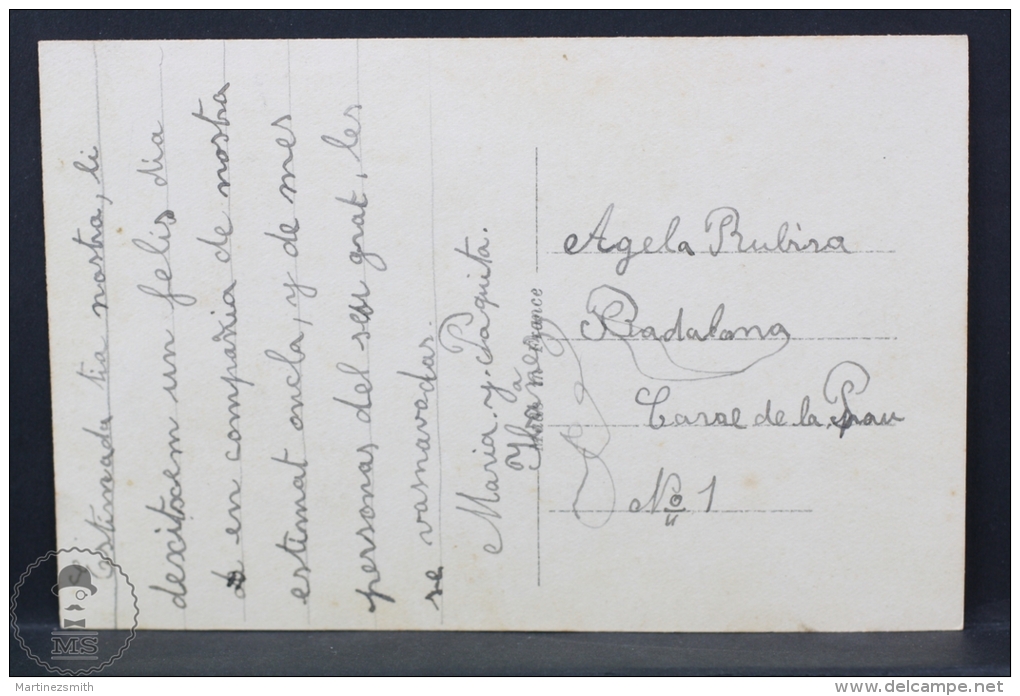 Estimada tia nostra, li
dexitxem un felis dia
en compañia de nostra
estimat oncla, y de mes
personas del seu grat, les
se vasnavodas.
Maria. y. Paquita.
France
Agela Rubira
Badalona
Carae de la Prau
Nº 1
MS
Martinezsmith
www.delcampe.net